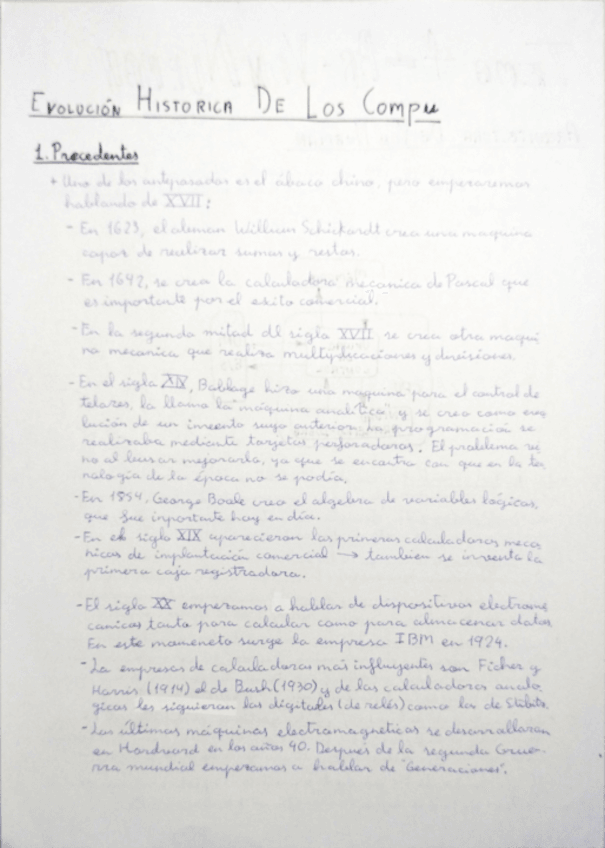 EVOLUCIÓN HISTORICA DE LOS COMPU
1. Precedentes
+ Uno de los antepasados es el ábaco chino, pero empezaremos
hablando de XVII:
- En 1623, el aleman William Schickardt crea una maquina
capaz de realizar sumas y restas.
- En 1642, se crea la calculadora mecanica de Pascal que
es importante por el exito comercial.
- En la segunda mitad del siglo XVII se crea otra maqui
na mecanica que realiza multiplicaciones y divisiones.
- En el siglo XIX, Babbage hizo una maquina para el control de
telares, la llamo la "máquina analítica" y se creo como evo
lución de un invento suyo anterior. La programación se
realizaba mediante tarjetas perforadoras. El problema vi
no al buscar mejorarla, ya que se encontra con que en la tec
nologia de la época no se podía.
- En 1854, George Boole creo el algebra de variables lógicas,
que fue inportante hoy en día.
- En el siglo XIX aparecieron las primeras calculadoras meca
nicas de implantación comercial → tambien se inventa la
primera caja registradora.
- El siglo XX empezamos a hablar de dispositivos electrome
canicos tanto para calcular como para almacenar datos
En este momeneto surge la empresa IBM en 1924.
- La empresas de calculadoras mas influyentes son Ficher y
Harris (1914) el de Bush (1930) y de las calculadoras analo
gicas les siguieron las digitales (de relés) como las de Stibits.
- Las últimas máquinas electromagneticas se desarrollaran
en Hardvard en los años 40. Después de la segunda Gue
rra mundial empezamos a hablar de "Generaciones".